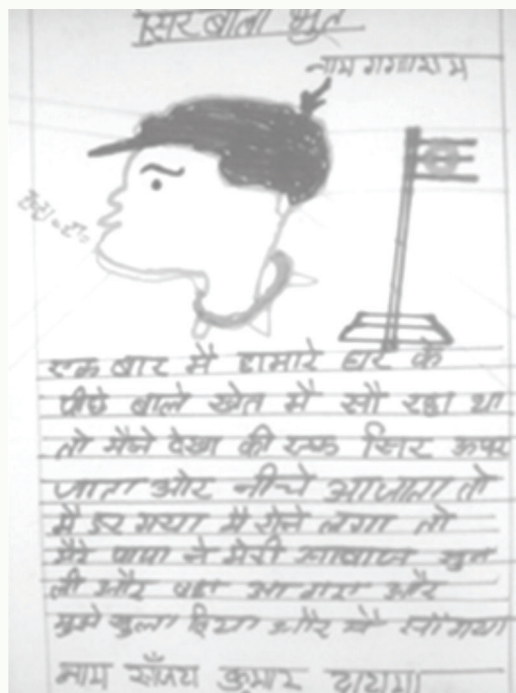 सिर बाला भुत
नाम गंगाराम
एक बार मै हामारे घर के
पीछे बाले खेत मै सौ रहा था
तो मैने देखा की एक सिर ऊपर
जाता ओर नीचे आजाता तो
मै डर गया मै रोने लगा तो
मेरे पापा ने मेरी आवाज सुन
ली और वहा आगए और
मुझे सुला दिया और मै सोगया
नाम संजय कुमार